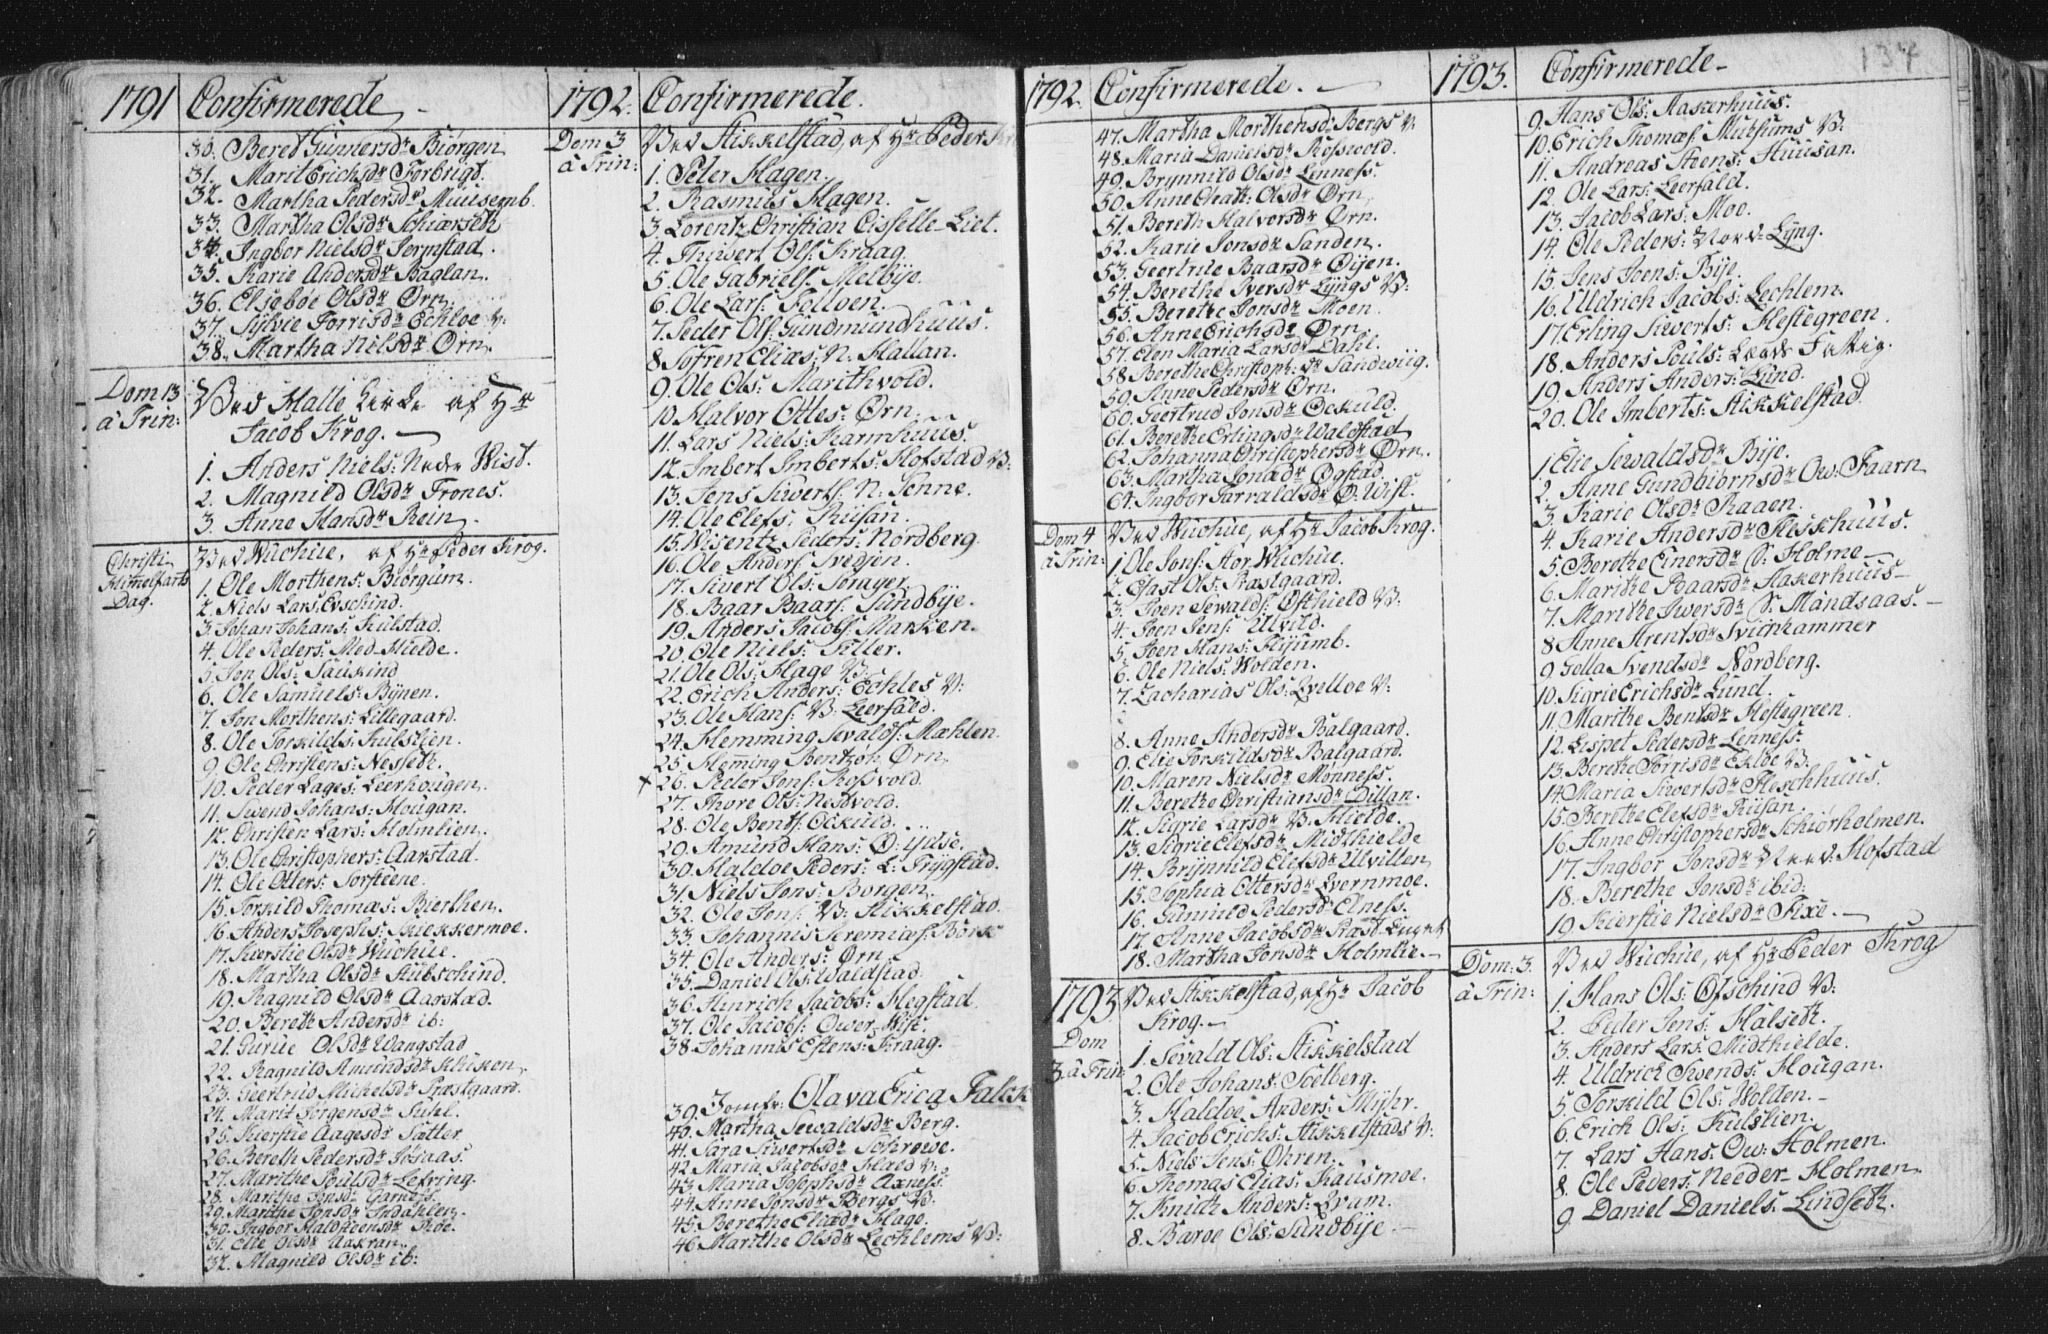 134
1791 Confirmerede
30. Beret Gunnersdr Biörgen
31. Marit Erichsdr Forbrigt
32. Martha Pedersdr Muusemb.
33. Martha Olsdr Schiærseth
34. Ingbor Nielsdr Jernstad.
35. Karie Andersdr Baglan.
36. Elsebde Olsdr Ørn.
37. Sylvie Torrisdr Echloe V:
38. Martha Nilsdr Ørn.
Dom 13 Ved Halle Kirke af Hr
a Trin: Jacob Krog.
1. Anders Niels: Nedre Wist.
2. Magnild Olsdr Trones.
3. Anne Hansdr Rein.
Christi Ved Wuchue, af Hr Peder Krog.
Himelfarts 1. Ole Morthens: Biörgum.
Dag. 2. Niels Lars: Evschind.
3. Johan Johans: Kulstad.
4. Ole Peders: Med-Hielde.
5. Jon Ols: Sauskind
6. Ole Samuels: Bÿnen.
7. Jon Morthens: Lillegaard.
8. Ole Torkilds: Kulslien.
9. Ole Christens: Nesseth.
10. Peder Lages: Leerhougen.
11. Swend Johans: Hougan.
12. Christen Lars: Holmlien.
13. Ole Christophers: Aarstad.
14. Ole Otters: Torsteene.
15. Torkild Thomæs: Bierthen.
16. Anders Josephs: Kiekkermoe.
17. Kierstie Olsdr Wuchue.
18. Martha Olsdr Stubschind.
19. Ragnild Olsdr Aarstad.
20. Bereth Andersdr ib:
21. Gurue Olsdr Wangstad
22. Ragnild Amundsdr Kluken
23. Geertrud Michelsdr Præstgaard.
24. Marit Jørgensdr Suhl.
25. Kierstie Aagesdr Sætter
26. Bereth Pedersdr Josaas.
27. Marithe Poulsdr Lefring.
28. Marithe Jonsdr Garness.
29. Marthe Jonsdr Indahlen.
30. Ingbor Haldstensdr Moe.
31. Elie Olsdr Aakran.
32. Magnild Olsdr ib:
1792. Confirmerede.
Dom 3 Ved Stikkelstad, af Hr Peder
a Trin: 1. Peter Hagen.
2. Rasmus Hagen.
3. Lorentz Christian Eisselle Liet.
4. Thisert Ols: Kraag.
5. Ole Gabriels: Melbÿe.
6. Ole Lars: Tolloen.
7. Peder Ols: Gundmundhuus.
8. Sofren Elias: N: Hallan.
9. Ole Ols: Marithvold.
10. Halvor Ottes: Ørn.
11. Lars Niels: Karmhuus.
12. Imbert Imberts: Hofstad V:
13. Jens Siwerts: N: Jenne.
14. Ole Elefs: Riisan.
15. Wisentz Peders: Nordberg.
16. Ole Anders: Svedjen.
17. Sivert Ols: Soraker
18. Baar Baars: Sundbÿe.
19. Anders Jacobs: Marken.
20. Ole Niels: Tiller.
21. Ole Ols: Hage V:
22. Erich Anders: Echles V:
23. Ole Hans: V: Leerfald.
24. Hemming Sevalds: Mæhlen.
25. Heming Bentzon Ørn
x 26. Peder Jons: Rosvold.
27. Thore Ols: Nessvold.
28. Ole Bents: Ockuld.
29. Amund Hans: Ø: ÿdse.
30. Haldoe Peders: L: Trÿgstad.
31. Niels Jons: Borgen.
32. Ole Jons: V: Stikkelstad
33. Johannis Jeremias: Börk
34. Ole Anders: Ørn.
35. Daniel Ols: Waldstad.
36. Hinrich Jacobs: Hegstad.
37. Ole Jacobs: Ower-Wist.
38. Johannis Estens: Kraag.
39. Jomfr: Olava Ericg Falck
40. Martha Sewaldsdr Berg.
41. Sara Siwertsdr Schrowe.
42. Maria Jacobsdr Hald V:
43. Maria Josephsdr Axness.
44. Anne Jonsdr Bergs V:
45. Berethe Eliædr Hage.
46. Marithe Olsdr Lechlems V:
1792. Confirmerede.
47. Martha Morthensdr Bergs V:
48. Maria Danielsdr Rosswold.
49. Brynnild Olsdr Linness.
50. Anne Chath: Olsdr Ørn
51. Bereth Halvorsdr Ørn.
52. Karie Jonsdr Sanden.
53. Geertrue Baarsdr Öijen.
54. Berethe Iversdr Lÿngs V:
55. Berethe Jonsdr Moen.
56. Anne Erichsdr Ørn.
57. Elen Maria Larsdr Dahl.
58. Berethe Christoph: dr Sandwiig.
59. Anne Pedersdr Ørn.
60. Geertrud Jonsdr Ockuld.
61. Berethe Erlingsdr Waldstad
62. Johanna Christophersdr Ørn.
63. Martha Jonadr Øgstad.
64. Ingbor Tarraldsdr Ø: Wist.
Dom 4 Ved Wuchue, af Hr Jacob Krog.
a Trin: 1. Ole Jons: Stor Wuchue.
2. Efast Ols: Præstgaard.
3. Joen Sewalds: Østhield V:
4. Joen Jens: Ulvild.
5. Joen Hans: Flÿumb.
6. Ole Niels: Wolden.
7. Zacharias Ols: Qvelloe V:
8. Anne Andersdr Balgaard.
9. Elie Torkildsdr Balgaard.
10. Maren Nielsdr Monness.
11. Berethe Christiansdr Dillan.
12. Sigrie Larsdr V: Hielde.
13. Sigrie Elefsdr Midthielde
14. Brÿnnild Elefsdr Ulvillen
15. Sophia Ottersdr Qvernmoe.
16. Gunnild Pedersdr Elness.
17. Anne Jacobsdr Præst-Eugnet
18. Martha Jonsdr Holmlie.
1793 Ved Stikkelstad, af Hr Jacob
Dom Krog.
3. a Trin: 1. Sevald Ols: Stikkelstad
2. Ole Johans: Soelberg.
3. Haldoe Anders: Mÿhr.
4. Jacob Erichs: Stikkelstads V:
5. Niels Jens: Øhren.
6. Thomas Elias: Kausmoe.
7. Knich Anders: Qvam.
8. Baroe Ols: Sundbÿe.
1793. Confirmerede
9. Hans Ols: Aakerhuus.
10. Erich Thomæs: Mutsums V:
11. Andreas Stens: Huusan.
12. Ole Lars: Leerfald.
13. Jacob Lars: Moe.
14. Ole Peders: Nord-Lÿng.
15. Jens Joens: Bÿe.
16. Uldrich Jacobs: Lechlem.
17. Erling Siwerts: Hestegreen.
18. Anders Pouls: Læge Fattig.
19. Anders Anders: Lund.
20. Ole Imberts: Stikkelstad.
1. Elie Sewaldsdr Bÿe.
2. Anne Gundbiornsdr Ow: Faarn
3. Karie Olsdr Raaen.
4. Karie Andersdr Fleskhuus.
5. Berethe Einersdr S: Holme
6. Marithe Baarsdr Aakerhuus
7. Marithe Iwersdr S: Mandsaas.
8. Anne Arentsdr Svienhammer
9. Golla Svendsdr Nordberg.
10. Sigrie Erichsdr Lund.
11. Marithe Bentsdr Hestegreen
12. Lispet Pedersdr Lenness.
13. Berethe Torrisdr Ekloe V:
14. Maria Siwertsdr Fleschhuus.
15. Berethe Elefsdr Riisan
16. Anne Christophersdr Schiørholmen.
17. Ingbor Jonsdr Need: Hofstad
18. Berethe Jonsdr ibid:
19. Kierstie Nielsdr Fixe.
Dom: 3. Ved Wuchue, af Hr Peder Krog
a Trin: 1. Hans Ols: Ofschind V:
2. Peder Jens: Halseth.
3. Anders Lars: Midthielde.
4. Uldrich Swends: Hougan.
5. Torkild Ols: Wolden.
6. Erich Ols: Kulslien.
7. Lars Hans: Ow: Holmen.
8. Ole Peders: Needer-Holmen
9. Daniel Daniels: Lindseth.